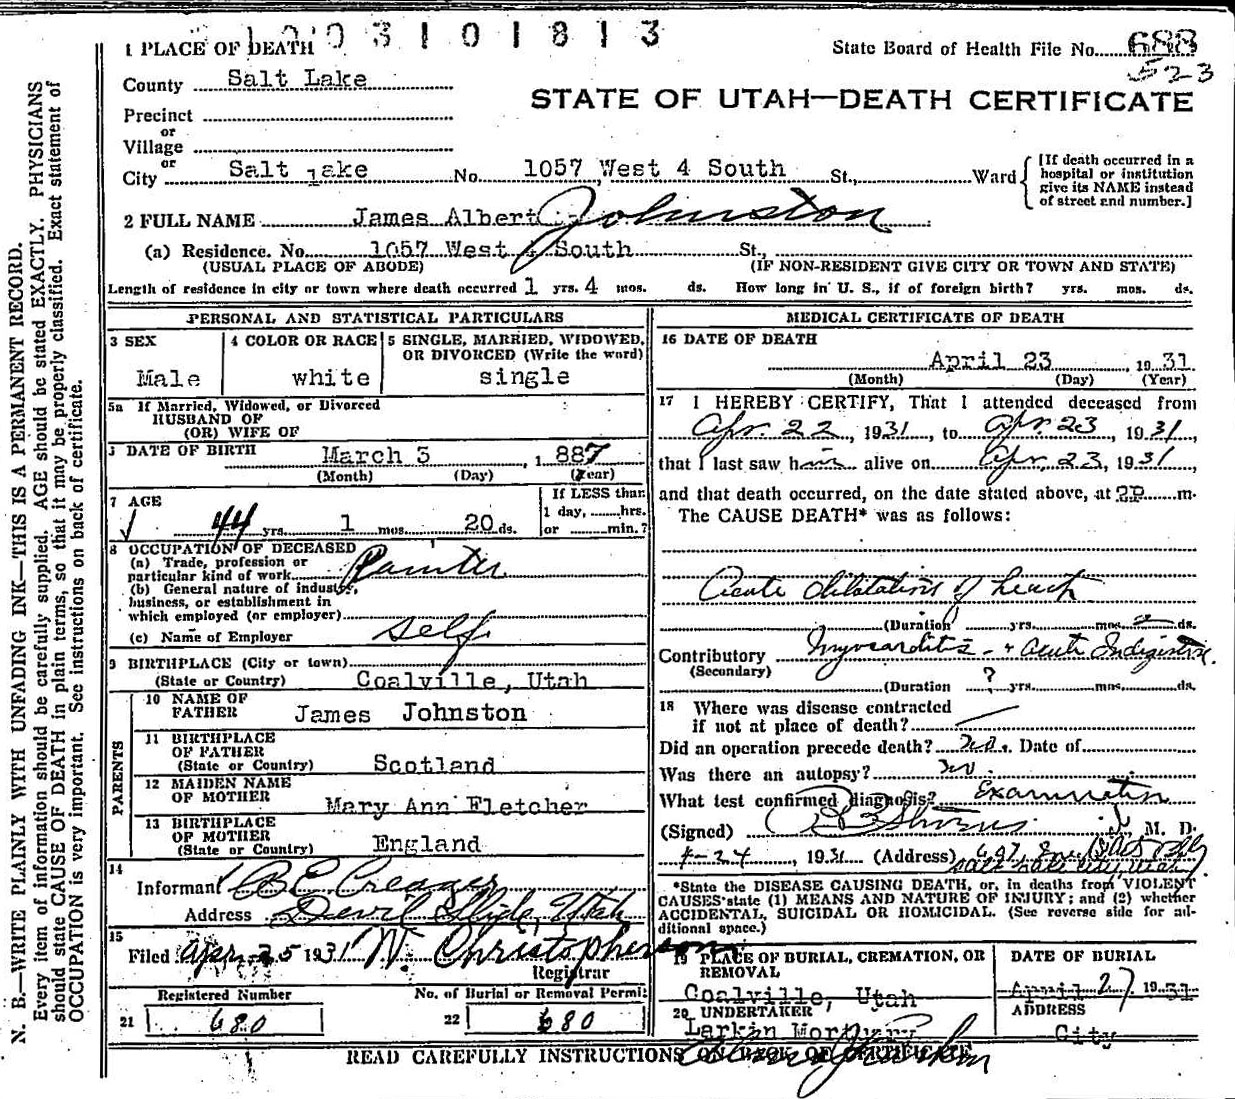 1003101813
1 PLACE OF DEATH
State Board of Health File No. 688
523
County Salt Lake
STATE OF UTAH—DEATH CERTIFICATE
Precinct
or
Village
or
City Salt Lake No. 1057 West 4 South St., Ward
[If death occurred in a hospital or institution give its NAME instead of street and number.]
2 FULL NAME James Albert Johnston
(a) Residence. No. 1057 West 4 South St.,
(USUAL PLACE OF ABODE) (IF NON-RESIDENT GIVE CITY OR TOWN AND STATE)
Length of residence in city or town where death occurred 1 yrs. 4 mos. ds. How long in U. S., if of foreign birth? yrs. mos. ds.
PERSONAL AND STATISTICAL PARTICULARS
3 SEX
Male
4 COLOR OR RACE
white
5 SINGLE, MARRIED, WIDOWED,
OR DIVORCED (Write the word)
single
5a If Married, Widowed, or Divorced
HUSBAND OF
(OR) WIFE OF
DATE OF BIRTH March 3, 1887
(Month) (Day) (Year)
7 AGE
44 yrs. 1 mos. 20 ds.
If LESS than
1 day, hrs.
or min.?
8 OCCUPATION OF DECEASED
(a) Trade, profession or
particular kind of work Painter
(b) General nature of industry,
business, or establishment in
which employed (or employer)
(c) Name of Employer self
9 BIRTHPLACE (City or town)
(State or Country) Coalville, Utah
PARENTS
10 NAME OF
FATHER James Johnston
11 BIRTHPLACE
OF FATHER
(State or Country) Scotland
12 MAIDEN NAME
OF MOTHER Mary Ann Fletcher
13 BIRTHPLACE
OF MOTHER
(State or Country) England
14
Informant B E Creager
Address Devil Slide, Utah
15
Filed Apr. 25 1931 W. Christopherson
Registrar
Registered Number
21 680
No. of Burial or Removal Permit
22 680
MEDICAL CERTIFICATE OF DEATH
16 DATE OF DEATH
April 23, 1931
(Month) (Day) (Year)
17 I HEREBY CERTIFY, That I attended deceased from
Apr. 22, 1931, to Apr. 23, 1931,
that I last saw him alive on Apr. 23, 1931,
and that death occurred, on the date stated above, at 2P m.
The CAUSE DEATH* was as follows:
Acute dilatations of heart
(Duration yrs. mos. 2 ds.
Contributory Myocarditis - + Acute Indigestion.
(Secondary)
(Duration ? yrs. mos. ds.
18 Where was disease contracted
if not at place of death?
Did an operation precede death? No. Date of
Was there an autopsy? no.
What test confirmed diagnosis? Examination
(Signed) M. D.
4-24, 1931 (Address)
Salt Lake City, Utah
*State the DISEASE CAUSING DEATH, or, in deaths from VIOLENT
CAUSES state (1) MEANS AND NATURE OF INJURY; and (2) whether
ACCIDENTAL, SUICIDAL OR HOMICIDAL. (See reverse side for ad-
ditional space.)
19 PLACE OF BURIAL, CREMATION, OR
REMOVAL
Coalville, Utah
DATE OF BURIAL
April 27, 1931
20 UNDERTAKER
Larkin Mortuary
ADDRESS
City
READ CAREFULLY INSTRUCTIONS ON BACK OF CERTIFICATE
N. B.—WRITE PLAINLY WITH UNFADING INK—THIS IS A PERMANENT RECORD.
Every item of information should be carefully supplied. AGE should be stated EXACTLY. PHYSICIANS
should state CAUSE OF DEATH in plain terms, so that it may be properly classified. Exact statement of
OCCUPATION is very important. See instructions on back of certificate.